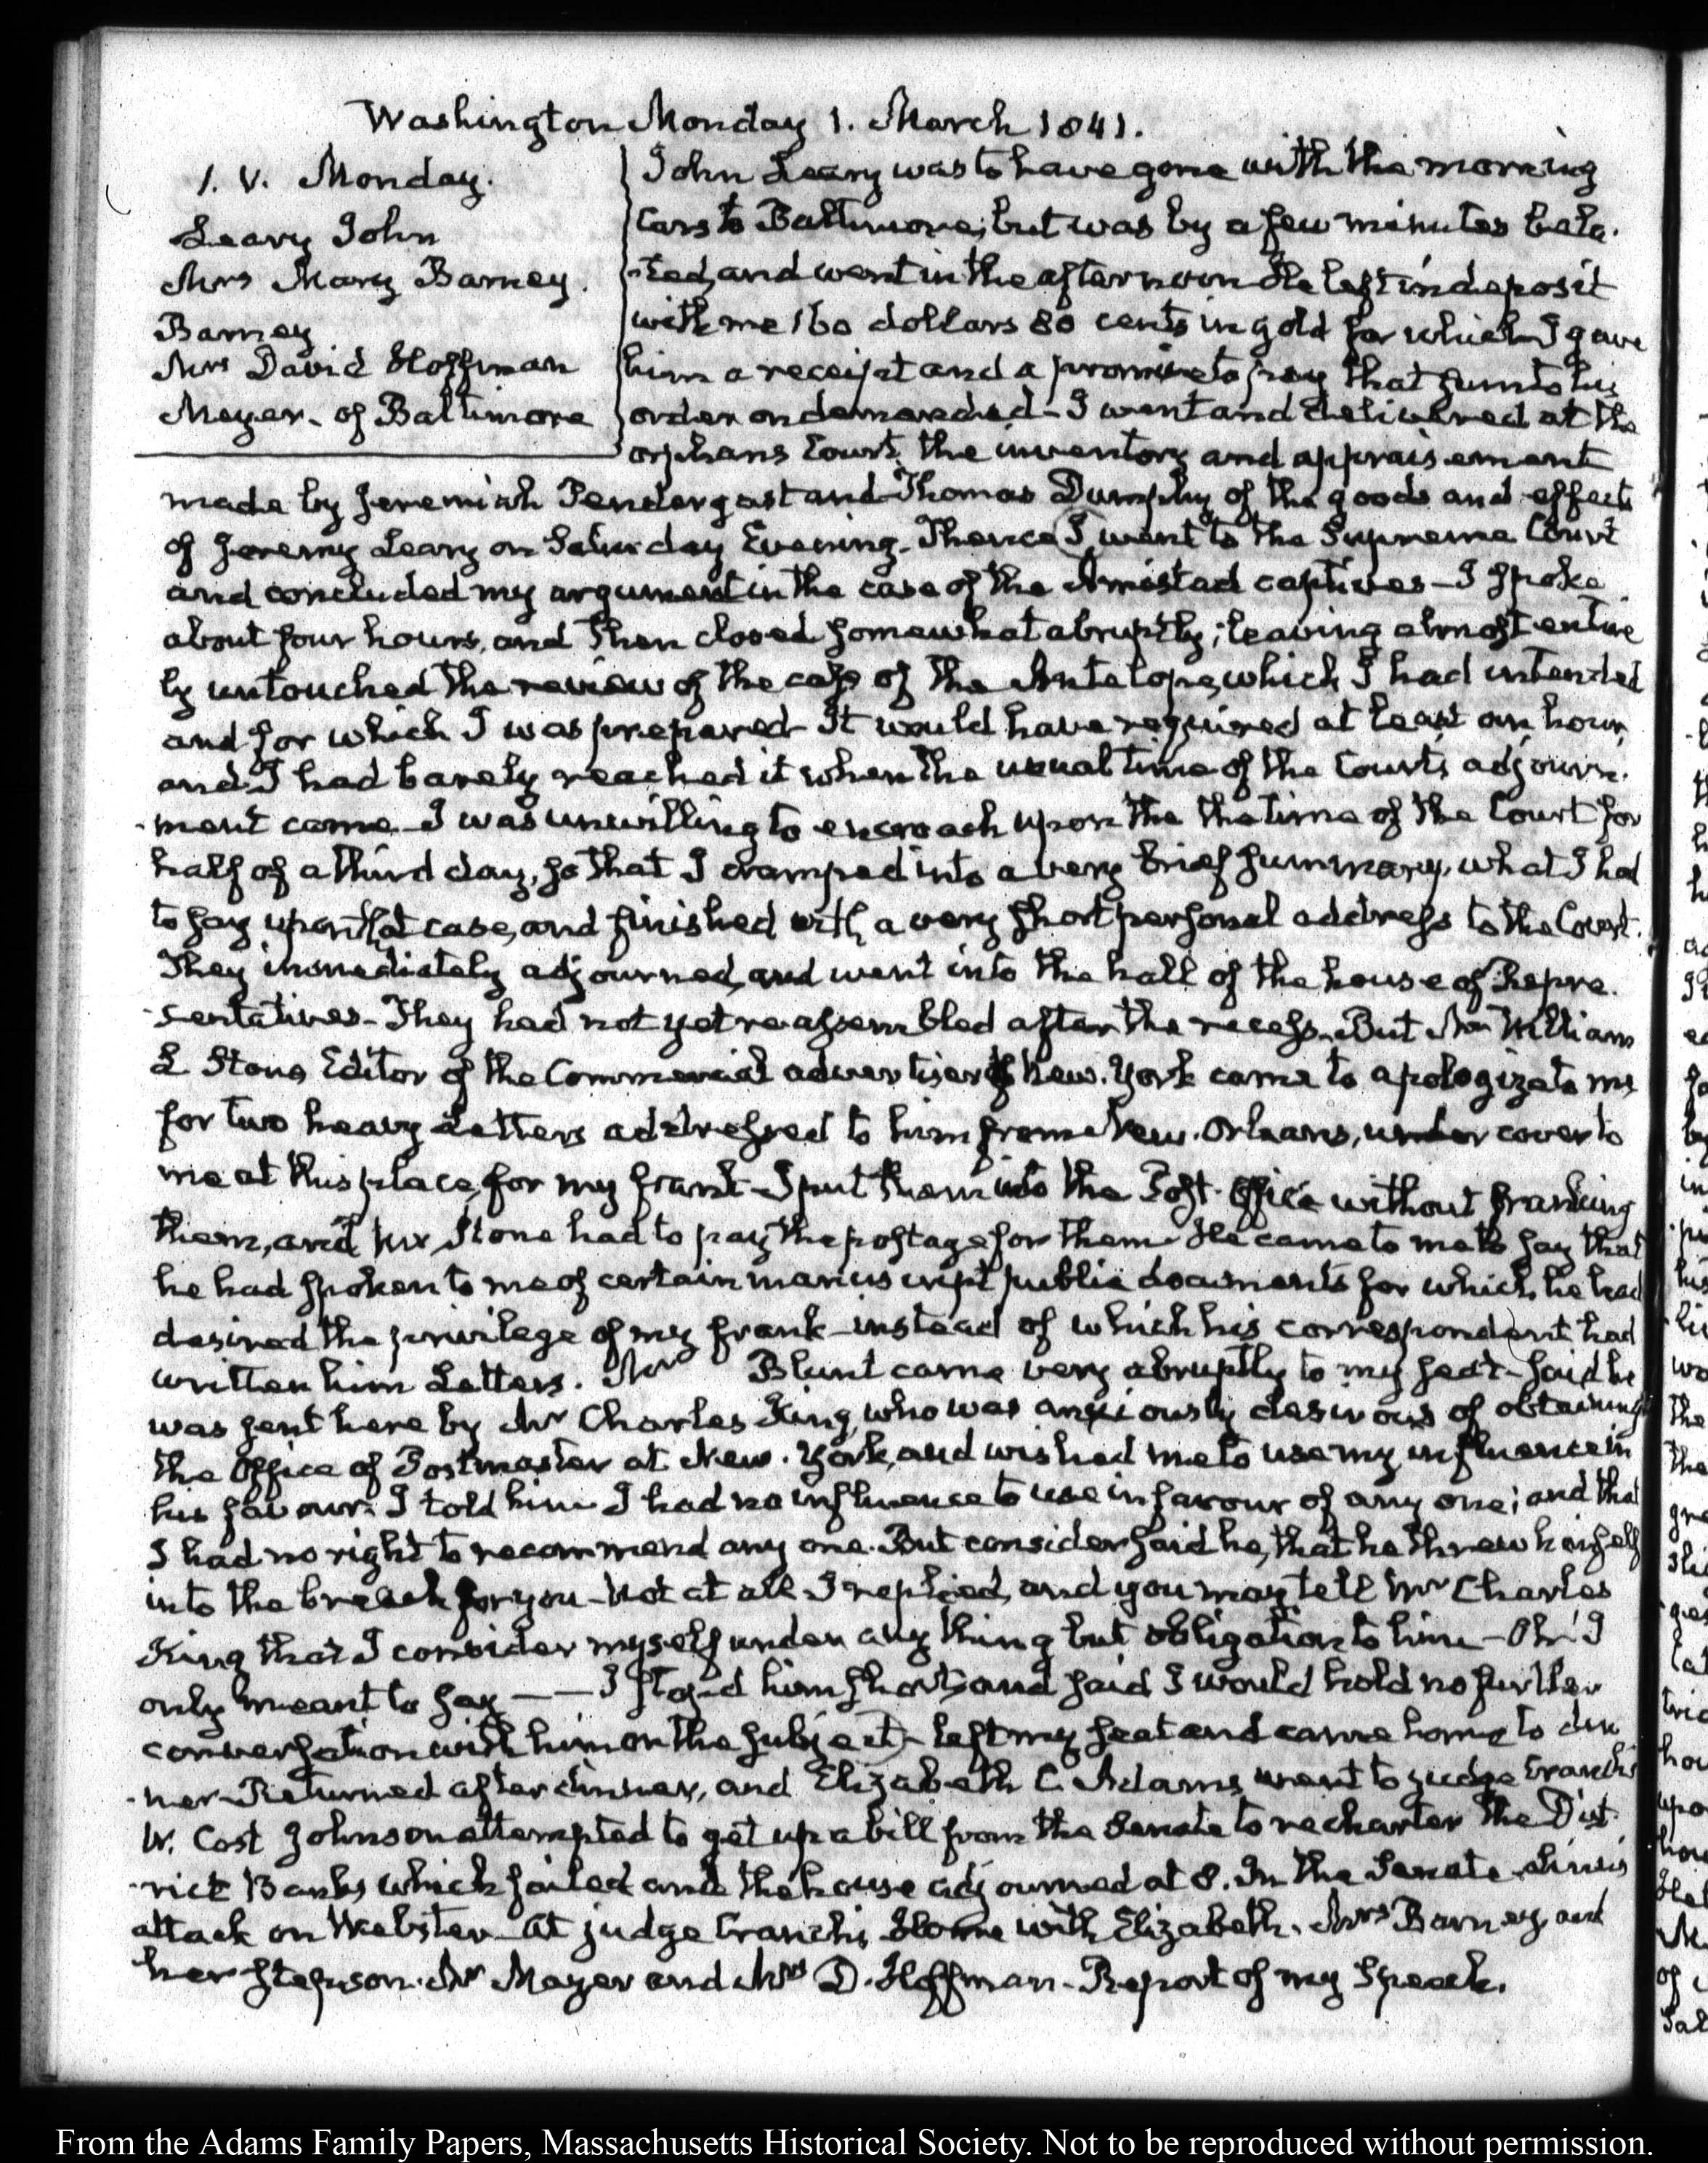 Washington Monday 1. March 1841.
1. V. Monday.
Leary John
Mrs Mary Barney.
Barney
Mrs David Hoffman
Meyer. of Baltimore
John Leary was to have gone with the morning
Cars to Baltimore; but was by a few minutes bela-
-ted, and went in the afternoon. He left in deposit
with me 160 dollars 80 cents in gold for which I gave
him a receipt and a promise to pay that sum to his
order on demanded - I went and delivered at the
orphans Court, the inventory and appraisement
made by Jeremiah Pendergast and Thomas Dumphy of the goods and effects
of Jeremy Leary on Saturday Evening. Thence I went to the Supreme Court
and concluded my argument in the case of the Amistad captives - I spoke
about four hours, and then closed somewhat abruptly; leaving almost entire
ly untouched the review of the case of the Antelope, which I had intended
and for which I was prepared - It would have required at least an hour,
and I had barely reached it when the usual time of the Court's adjourn-
-ment came - I was unwilling to encroach upon the the time of the Court for
half of a third day, so that I cramped into a very brief summary, what I had
to say upon that case, and finished with a very short personal address to the Court.
They immediately adjourned, and went into the hall of the house of Repre-
-sentatives - They had not yet reassembled after the recess. But Mr William
L Stone Editor of the Commercial advertiser of New-York came to apologize to me
for two heavy Letters addressed to him from New-Orleans, under cover to
me at this place, for my frank - I put them into the Post-Office without franking
them, and Mr Stone had to pay the postage for them - He came to me to say that
he had spoken to me of certain manuscript public documents for which he had
desired the privilege of my frank - instead of which his correspondent had
written him Letters. Mr Blunt came very abruptly to my seat - said he
was sent here by Mr Charles King, who was anxiously desirous of obtaining
the Office of Postmaster at New-York, and wished me to use my influence in
his favour. I told him I had no influence to use in favour of any one; and that
I had no right to recommend any one. But consider said he, that he threw himself
into the breach for you - Not at all I replied, and you may tell Mr Charles
King that I consider myself under any thing but obligation to him - Oh! I
only meant to say - - I stop'd him short, and said I would hold no further
conversation with him on the subject - left my seat and came home to din
-ner - Returned after dinner, and Elizabeth C. Adams went to judge Cranch's
W. Cost Johnson attempted to get up a bill from the Senate to recharter the Dist-
-rict Banks which failed and the house adjourned at 8. In the Senate
attack on Webster - At judge Cranch's. Home with Elizabeth. Mrs Barney and
her stepson. Mr Mayer and Mrs D. Hoffman - Report of my Speech.
From the Adams Family Papers, Massachusetts Historical Society. Not to be reproduced without permission.